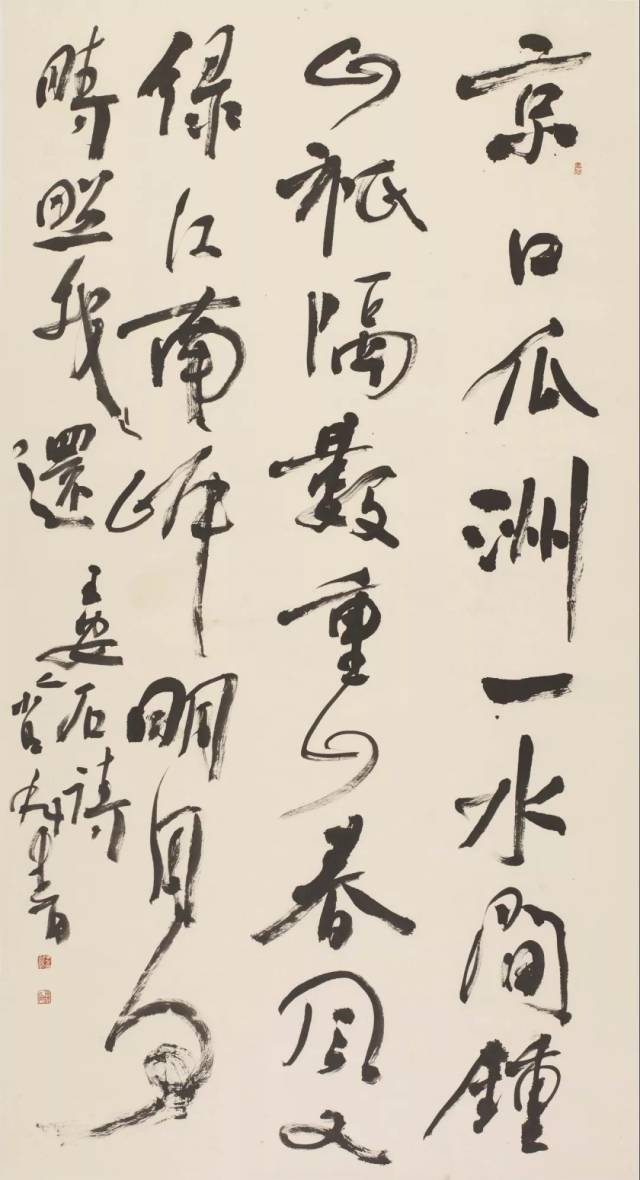 京口瓜洲一水間鍾
山祇隔數重山春風又
綠江南岸明月何
時照我還
王安石詩
書